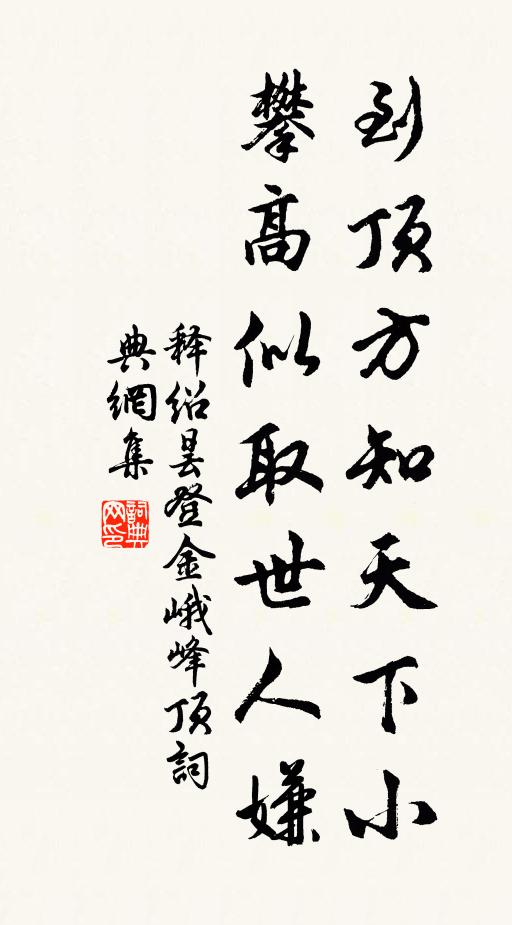 到顶方知天下小
攀高似取世人嫌
释绍昙登金峨峰顶詞
典網集
詞典网印